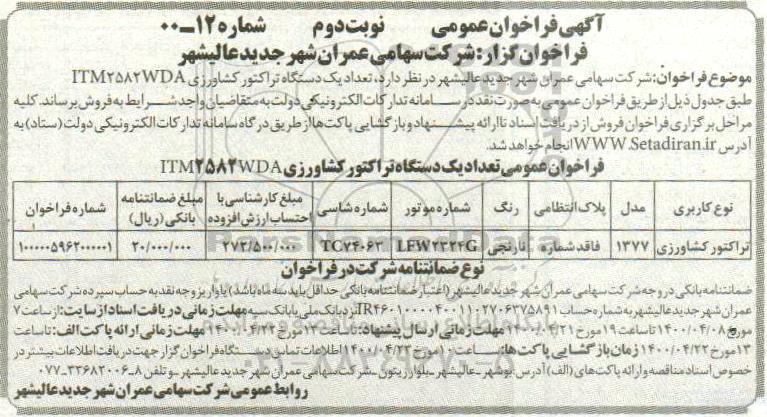 آگهی فراخوان عمومی نوبت دوم شماره ۱۲-۰۰
فراخوان گزار: شرکت سهامی عمران شهر جدید عالیشهر
موضوع فراخوان: شرکت سهامی عمران شهر جدید عالیشهر در نظر دارد، تعداد یک دستگاه تراکتور کشاورزی ITM۲۵۸۲WDA
طبق جدول ذیل از طریق فراخوان عمومی به صورت نقد در سامانه تدارکات الکترونیکی دولت به متقاضیان واجد شرایط به فروش برساند. کلیه
مراحل برگزاری فراخوان فروش از دریافت اسناد تا ارائه پیشنهاد و بازگشایی پاکت‌ها از طریق درگاه سامانه تدارکات الکترونیکی دولت (ستاد) به
آدرس WWW.Setadiran.ir انجام خواهد شد.
فراخوان عمومی تعداد یک دستگاه تراکتور کشاورزی ITM۲۵۸۲WDA
نوع کاربری مدل پلاک انتظامی رنگ شماره موتور شماره شاسی مبلغ کارشناسی با احتساب ارزش افزوده مبلغ ضمانتنامه بانکی (ریال) شماره فراخوان
تراکتور کشاورزی ۱۳۷۷ فاقد شماره نارنجی LFW۷۳۲۴G TC۷۴۰۶۲ ۲۷۳/۵۰۰/۰۰۰ ۲۰/۰۰۰/۰۰۰ ۱۰۰۰۰۰۵۹۶۲۰۰۰۰۱
نوع ضمانتنامه شرکت در فراخوان
ضمانتنامه بانکی در وجه شرکت سهامی عمران شهر جدید عالیشهر (اعتبار ضمانتنامه بانکی حداقل باید سه ماه باشد) یا واریز وجه نقد به حساب سپرده شرکت سهامی
عمران شهر جدید عالیشهر به شماره حساب نزد بانک ملی یا بانک سپه مهلت زمانی دریافت اسناد از سایت: از ساعت ۷
مورخ ۱۴۰۰/۰۴/۰۸ تا ساعت ۱۹ مورخ ۱۴۰۰/۰۴/۲۱ مهلت زمانی ارسال پیشنهاد: تا ساعت ۱۳ مورخ ۱۴۰۰/۰۴/۲۲ مهلت زمانی ارائه پاکت الف: تا ساعت
۱۳ مورخ ۱۴۰۰/۰۴/۲۲ زمان بازگشایی پاکت‌ها: ساعت ۱۰ مورخ ۱۴۰۰/۰۴/۲۳ اطلاعات تماس دستگاه فراخوان گزار جهت دریافت اطلاعات بیشتر در
خصوص اسناد مناقصه و ارائه پاکت‌های (الف) آدرس: بوشهر - عالیشهر - بلوار زیتون - شرکت سهامی عمران شهر جدید عالیشهر - و تلفن ۸-۳۳۶۸۲۰۰۶-۰۷۷
روابط عمومی شرکت سهامی عمران شهر جدید عالیشهر